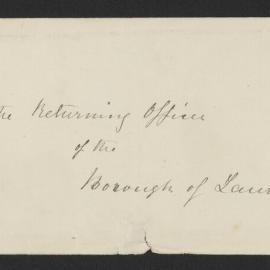 the Returning Officer
of the
Borough of